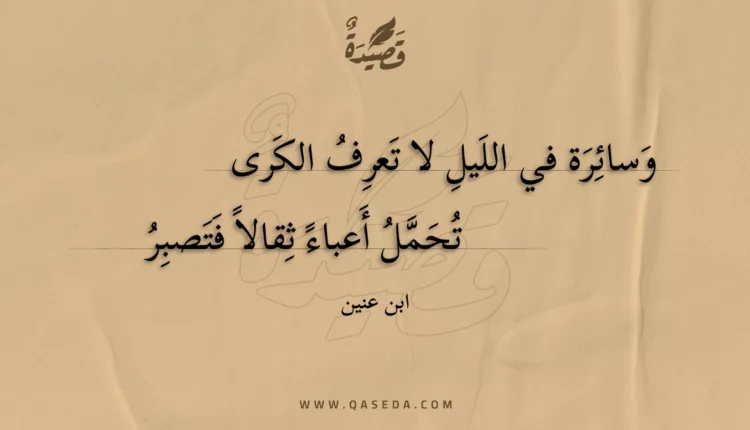 قَصِيدَةٌ
وَسائِرَة في اللَيلِ لا تَعرِفُ الكَرى
تُحَمَّلُ أَعباءً ثِقالاً فَتَصبِرُ
ابن عنين
WWW.QASEDA.COM